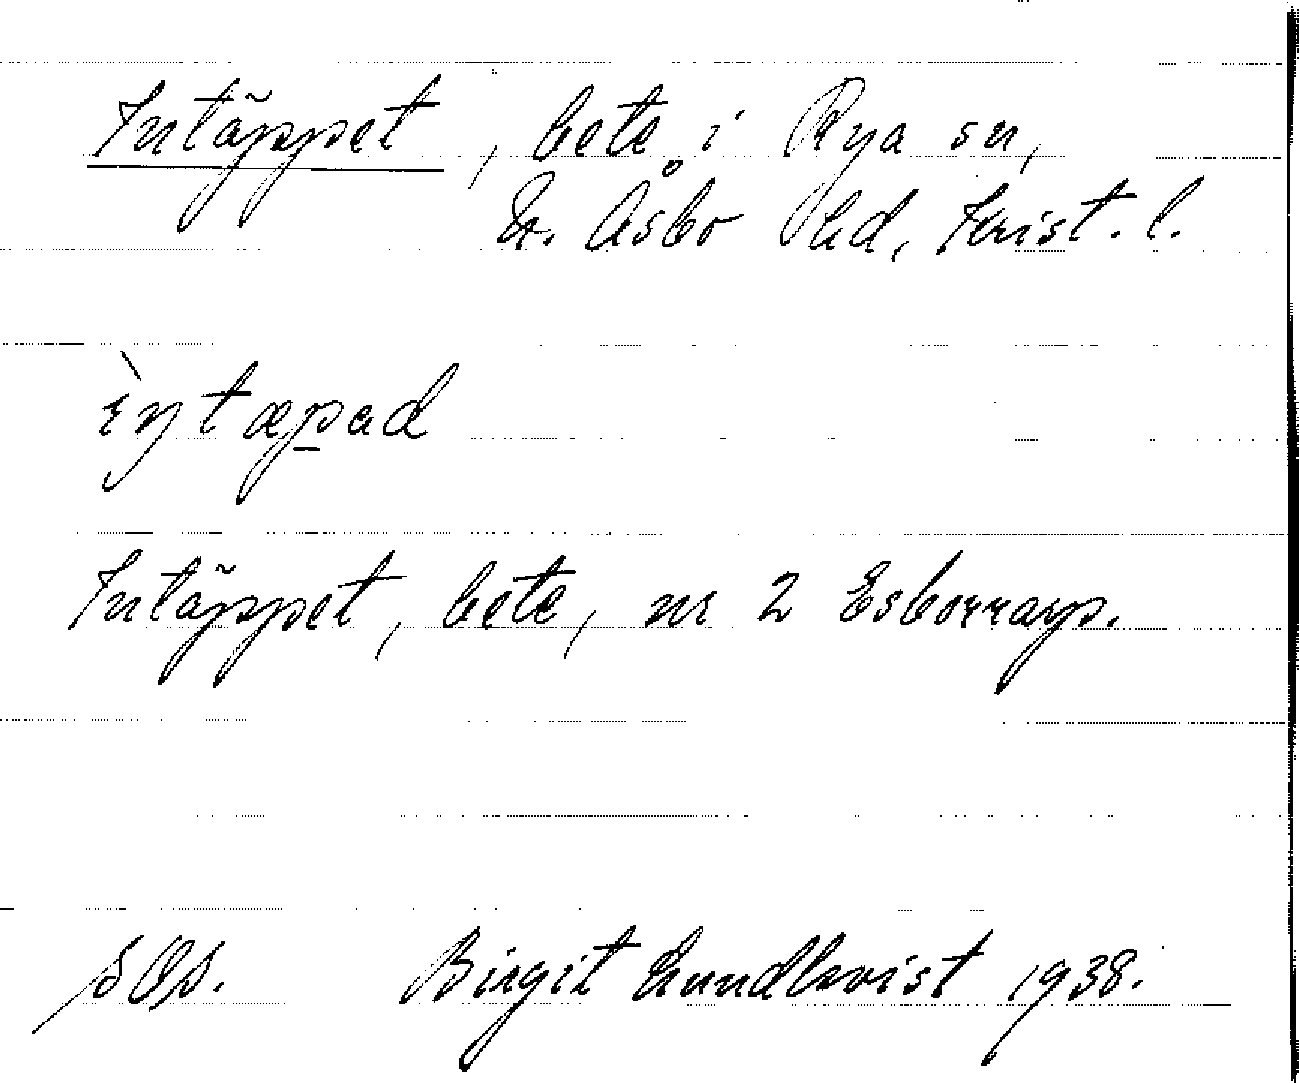 Intäppet, bete i Rya sn,
N. Åsbo hd, Krist. l.
ìntæpad
Intäppet, bete, nr 2 Esborrarp.
SOS. Birgit Lundkvist 1938.